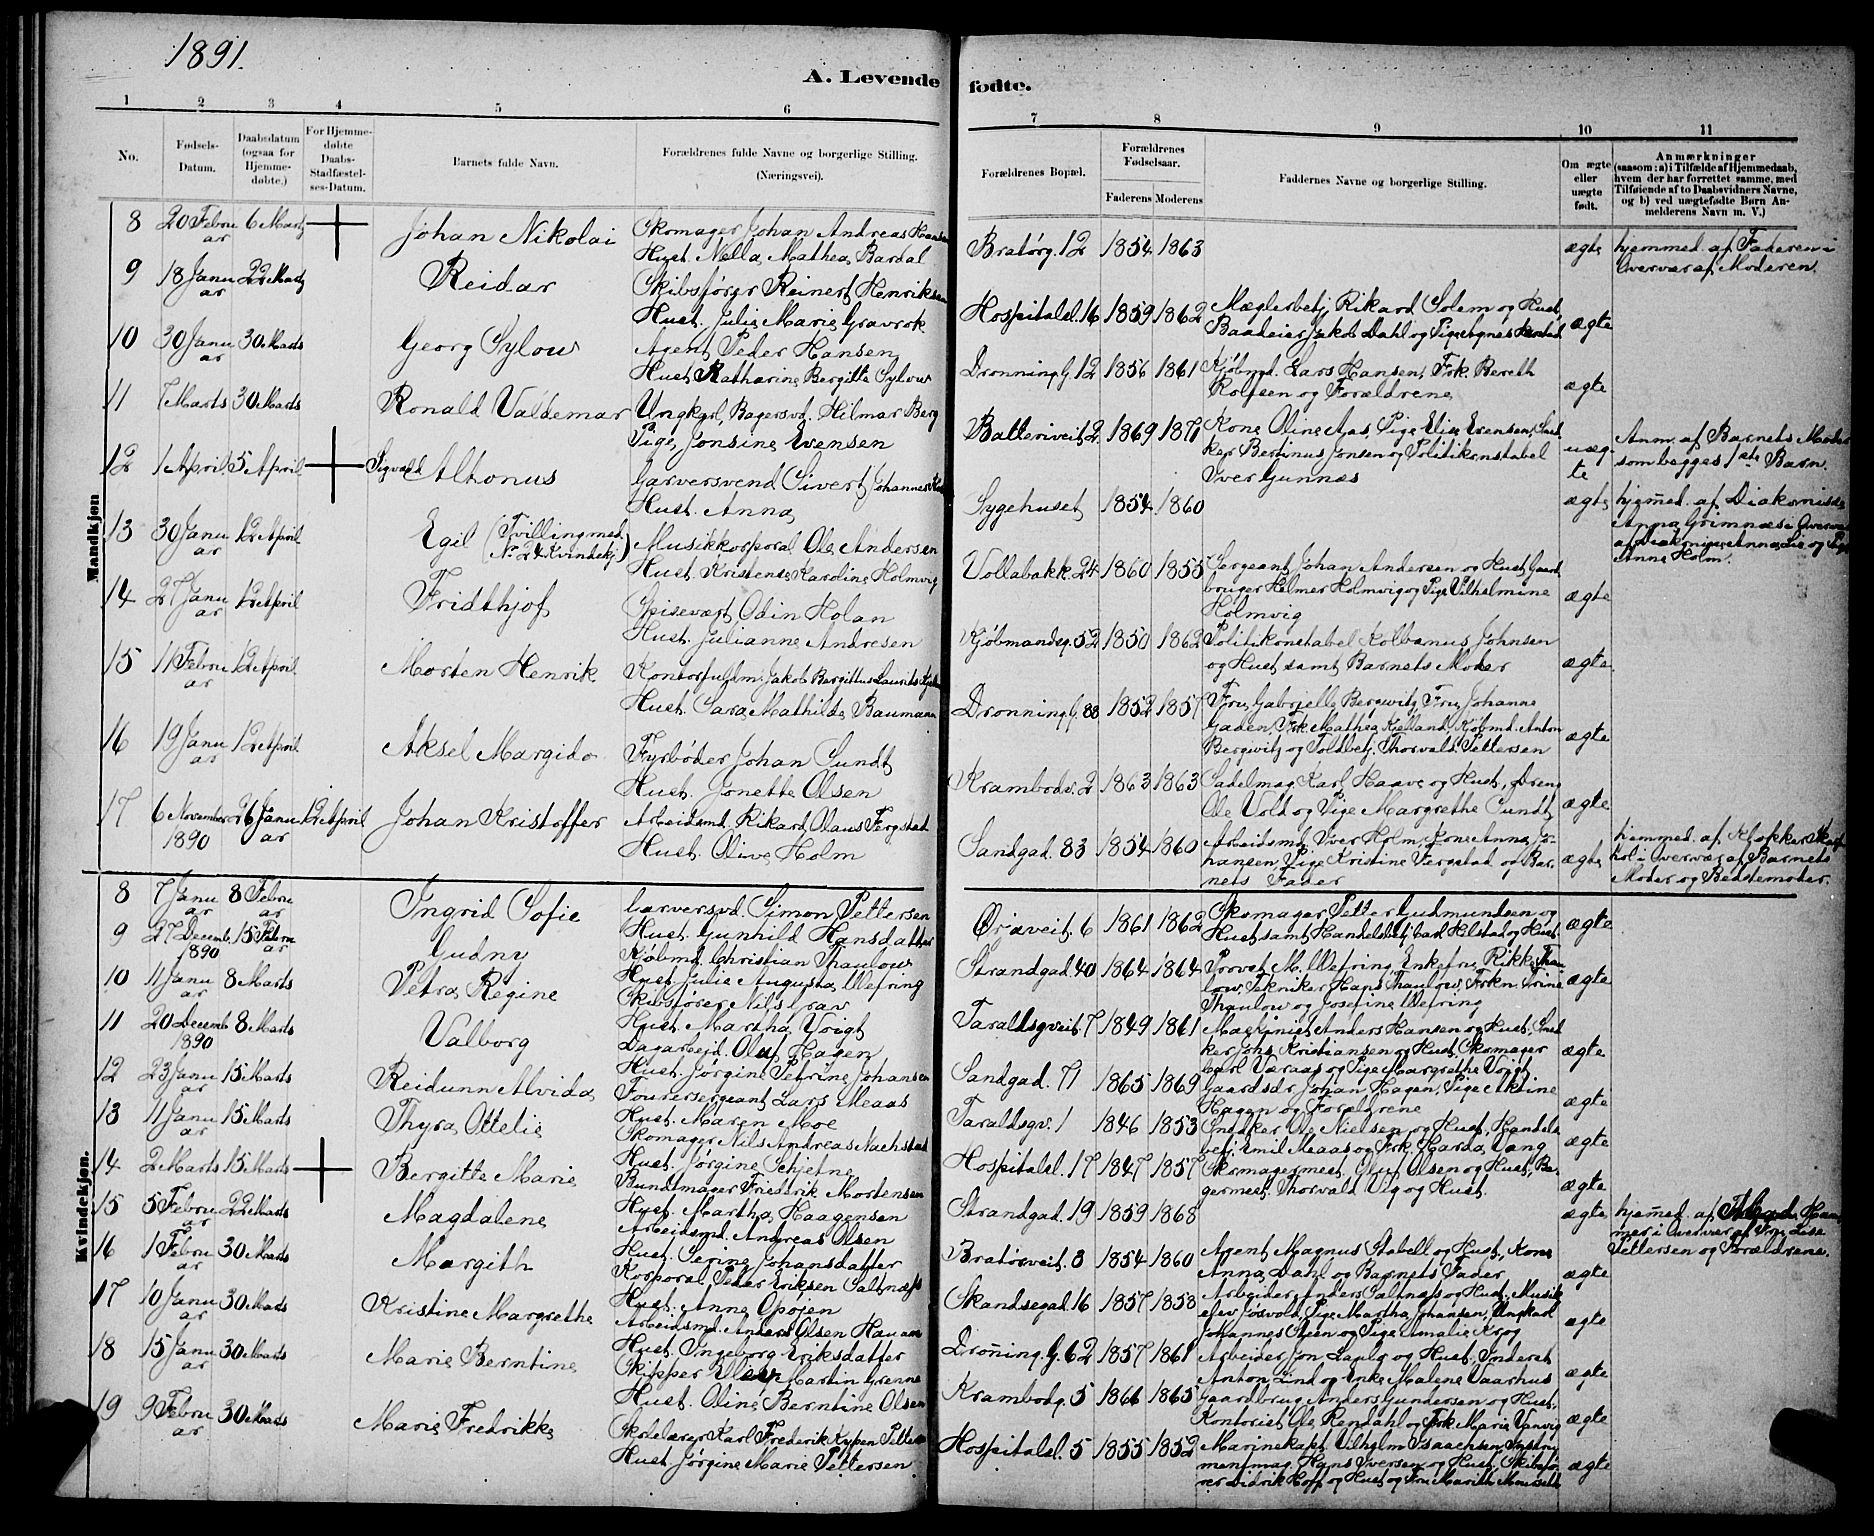 1891.
A. Levende fødte.
1 2 3 4 5 6 7 8 9 10 11
No.
Fødsels-Datum.
Daabsdatum (ogsaa for Hjemme-døbte.)
For Hjemme-døbte Daabs-Stadfæstel-ses-Datum.
Barnets fulde Navn.
Forældrenes fulde Navne og borgerlige Stilling. (Næringsvei).
Forældrenes Bopæl.
Forældrenes Fødselsaar.
Faderens Moderens
Faddernes Navne og borgerlige Stilling.
Om ægte eller uægte født.
Anmærkninger (saasom: a) i Tilfælde af Hjemmedaab, hvem der har forrettet samme, med Tilføiende af to Daabsvidners Navne, og b) ved uægtefødte Børn An-melderens Navn m. V.)
Mandkjøn
8 20 Februar 6 Marts Johan Nikolai Skomager Johan Andreas Hansen
Hust. Nella Mathea Bardal
Bratørg. 12 1854 1863 ægte hjemmed. af Faderen i
Overvær af Moderen.
9 18 Januar 22 Marts Reidar Skibsfører Reinert Henriksen
Hust. Julie Marie Gravrok
Hospitalsl. 16 1859 1862 Mæglerbetj. Rikard Solem og Hust,
Baadeier Jakob Dahl og Pige Agnes ægte
10 30 Januar 30 Marts Georg Sylow Agent Peder Hansen
Hust. Katharine Bergitte Sylow
Dronning G. 12 1856 1861 Kjøbmd. Lars Hansen, Frk. Bereth
Rolfsen og Forældrene ægte
11 7 Marts 30 Marts Ronald Valdemar Ungkarl, Bagersvd. Hilmar Berg
Pige, Jonsine Evensen
Batteriveit 2 1869 1871 Kone Oline Aas, Pige Elise Evensen, Snedker Bertinus Jonsen og Politikonstabel
Iver Gunnæs uægte
Anm. af Barnets Moder
som begges 1ste Barn.
12 1 April 5 April Sigvald Alfonus Garversvend Sivert Johannes
Hust. Anna
Sygehuset 1854 1860 ægte hjemmed. af Diakonisse
Anna Grimnæs i Overvær
af Diakonisse Anna Lie og Pige
Anne Holm.
13 30 Januar 12 April Egil (Tvilling med
No. 24 Kvindekj.) Musikkorporal Ole Andersen
Hust. Kristense Kardine Holmvig
Vollabakk. 24 1860 1855 Sergeant Johan Andersen og Hust. Gaard
bruger Helmer Holmvig og Pige Vilhelmine
Holmvig ægte
14 27 Januar 12 April Fridthjof Spisevært Odin Holan
Hust. Julianne Andresen
Kjøbmandsg. 52 1850 1862 Politikonstabel Kolbanus Johnsen
og Hust samt Barnets Moder ægte
15 11 Februar 12 April Morten Henrik Kontorfuldm. Jakob Bergittus Laurits
Hust. Sara Mathilde Baumann
Dronning G. 88 1852 1857 Fru Gabrielle Bergwitz, Fru Johanne
Gaden, Frk. Mathea Kjelland, Kjøbmd. Anton
Bergwitz og Toldbetj. Thorvald Pettersen ægte
16 19 Januar 12 April Aksel Margido Fyrbøder Johan Sundt
Hust. Jonette Olsen
Krambodv. 2 1863 1863 Sadelmag. Karl Haave og Hust, Dreng
Ole Vold og Pige Margrethe Sundt ægte
17 6 November 1890 26 Januar 12 April Johan Kristoffer Arbeidsmd. Rikard Olaus Fergstad
Hust. Olive Holm
Sandgad. 83 1854 1860 Arbeidsmd. Iver Holm, Kone Anna Johansen, Pige Kristine Vergstad og Barnets Fader ægte
hjemmed. af Klokker
i Overvær af Barnets
Moder og Bedstemoder.
Kvindekjøn.
8 7 Januar 8 Februar Ingrid Sofie Garversvd. Simon Pettersen
Hust. Gunhild Hansdatter
Øraveit. 6 1861 1862 Skomager Petter Gudmundsen og
Hust samt Handelsbetj. Carl Hilstad og Hust. ægte
9 27 Decemb. 1890 15 Februar Gudny Kjøbmd. Christian Thaulow
Hust Julie Augusta Wefring
Strandgad. 40 1864 1864 Provst M. Wefring, Enkefru Rikke Thaulow, Tekniker Hans Thaulow, Frkn Trine
Thaulow og Josefine Wefring ægte
10 11 Januar 8 Marts Petra Regine Skibsfører Nils Grav
Hust. Martha Voigt
Taraldsgveit 7 1849 1861 Maskinist Anders Hansen og Hust, Snedker Johs. Kristiansen og Hust, Skomager
Carl Væraas og Pige Margrethe Voigt ægte
11 20 Decemb 1890 8 Marts Valborg Dagarbeid. Oluf Hagen
Hust. Jørgine Petrine Johansen
Sandgad. 71 1865 1869 Gaardsdr. Johan Hagen, Pige Aktine
Hagen og Forældrene ægte
12 23 Januar 15 Marts Reidunn Alvida Fourersergeant Lars Meaas
Hust. Maren Moe
Taraldsgv. 1 1846 1853 Snedker Ole Nielsen og Hust, Handelsbetj. Emil Meaas og Frk. Harda Vang ægte
13 11 Januar 15 Marts Thyra Ottelie Skomager Nils Andreas Nachstad
Hust. Jørgine Schjefne
Hospitalsl. 17 1847 1857 Skomagermest. Oluf Olsen og Hust, Bagermest. Thorvald Vig og Hust. ægte
14 2 Marts 15 Marts Bergitte Marie Bundtmager Friedrik Mortensen
Hust. Martha Haagensen
Strandgad. 19 1859 1868 ægte hjemmed. af
i Overvær af Fru Lise
Pettersen og Forældrene.
15 5 Februar 22 Marts Magdalene Arbeidsmd. Andreas Olsen
Hust. Serine Johansdatter
Bratørveit. 3 1854 1860 Agent Magnus Stabell og Hust, Kone
Anna Dahl og Barnets Fader ægte
16 1 Februar 30 Marts Margith Korporal Peder Eriksen Saltnæs
Hust. Anne Opøien
Skandsegad. 16 1857 1858 Arbeider Anders Saltnæs og Hust. Musik
elev Jøsvold, Pige Martha Johansen, Ungkarl
Johannes Øien og Pige Amalie Krog ægte
17 10 Januar 30 Marts Kristine Margrethe Arbeidsmd. Anders Olsen Hauan
Hust. Ingeborg Eriksdatter
Droning G. 62 1857 1861 Arbeider Jon og Hust, Inderst
Anton Lind og Enke Malene Vaarhus ægte
18 15 Januar 30 Marts Marie Berntine Skipper Martin Grenne
Hust. Oline Berntine Olsen
Krambodg. 5 1866 1865 Gaardbrug. Anders Gundersen og Hust,
Kontorist Ole Rendahl og Frk. Marie Vanvig ægte
19 9 Februar 30 Marts Marie Fredrikke Skolelærer Karl Frederik Petter
Hust Jørgine Marie Pettersen
Hospitalsl. 5 1855 1852 Marinekapt. Vilhelm Isaachsen, Instru
mentmag. Hans Iversen og Hust, Skibsfører Didrik Hoff og Hust og Fru Marith ægte